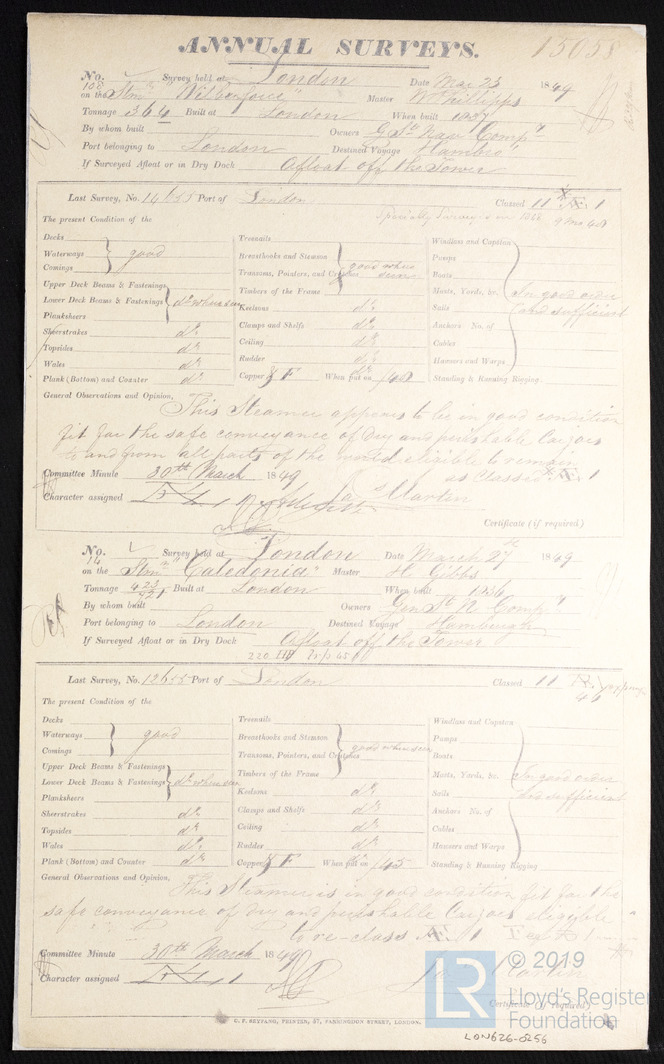 ANNUAL SURVEYS. 15058
No. 108 Survey held at London Date Mar 23 1849
on the Stmr "Wilberforce" Master W Phillipps
Tonnage 364 Built at London When built 1837
By whom built Owners Gl St. Nav. Comp.y
Port belonging to London Destined Voyage Hambro'
If Surveyed Afloat or in Dry Dock Afloat off the Tower
Last Survey, No. Port of London Classed 1
Specially Surveyed in 9 mo 48
The present Condition of the
Decks
Waterways good
Comings
Upper Deck Beams & Fastenings
Lower Deck Beams & Fastenings do when seen
Planksheers
Sheerstrakes do
Topsides do
Wales do
Plank (Bottom) and Counter do
Treenails
Breasthooks and Stemson
Transoms, Pointers, and Crutches good when seen
Timbers of the Frame
Keelsons do
Clamps and Shelfs do
Ceiling do
Rudder do
Copper Y F When put on /48
Windlass and Capstan
Pumps
Boats
Masts, Yards, &c. In good order
Sails and sufficient
Anchors No. of
Cables
Hawsers and Warps
Standing & Running Rigging
General Observations and Opinion,
This Steamer appears to be in good condition
fit for the safe conveyance of Dry and perishable Cargoes
to and from all parts of the world eligible to remain
as Classed Æ 1
Committee Minute 30th March 1849
Character assigned Martin
Certificate (if required)
No. 14 Survey held at London Date March 27th 1849
on the Stmr "Caledonia" Master H. Gibbs
Tonnage 423/721 Built at London When built 1836
By whom built Owners Genl St N Comp.y
Port belonging to London Destined Voyage Hamburgh
If Surveyed Afloat or in Dry Dock Afloat off the Tower
Last Survey, No. 12655 Port of London Classed 46
The present Condition of the
Decks
Waterways good
Comings
Upper Deck Beams & Fastenings
Lower Deck Beams & Fastenings do when seen
Planksheers
Sheerstrakes do
Topsides do
Wales do
Plank (Bottom) and Counter do
Treenails
Breasthooks and Stemson
Transoms, Pointers, and Crutches good when seen
Timbers of the Frame
Keelsons do
Clamps and Shelfs do
Ceiling do
Rudder do
Copper Y F When put on /45
Windlass and Capstan
Pumps
Boats
Masts, Yards, &c. In good order
Sails and sufficient
Anchors No. of
Cables
Hawsers and Warps
Standing & Running Rigging
General Observations and Opinion,
This Steamer is in good condition fit for the
safe conveyance of dry and perishable Cargoes eligible
to re-class Æ 1
Committee Minute 30th March 1849
Character assigned
Certificate (if required)
G. F. SEYFANG, PRINTER, 57, FARRINGDON STREET, LONDON.
LR © 2019
Lloyd's Register
Foundation
LON626-0256